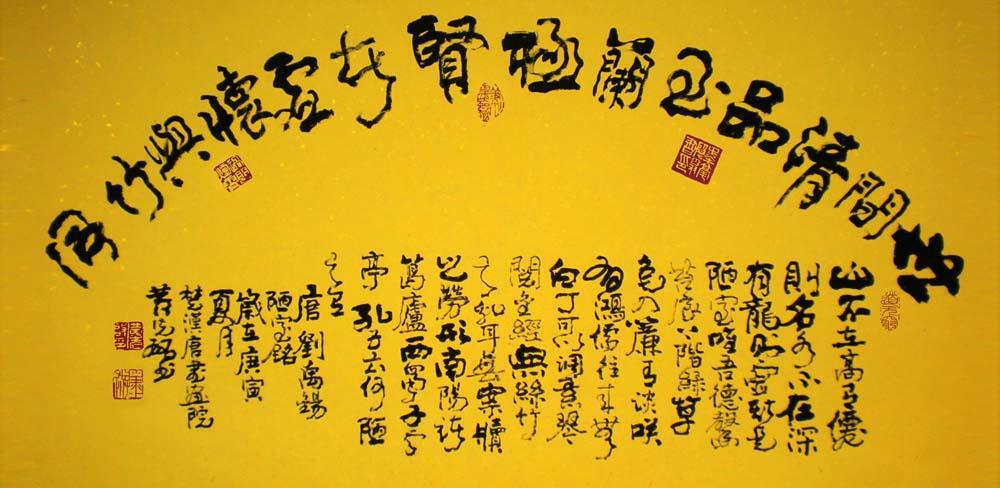 世間清品至蘭極賢者虛懷與竹同
山不在高有僊
則名水不在深
有龍則靈斯是
陋室唯吾德馨
苔痕上階綠草
色入簾青談咲
有鴻儒往來無
白丁可以調素琴
閱金經無絲竹
之亂耳無案牘
之勞形南陽諸
葛廬西蜀子雲
亭孔子云何陋
之有
唐劉禹錫
陋室銘
歲在庚寅
夏月
楚漢唐書畫院